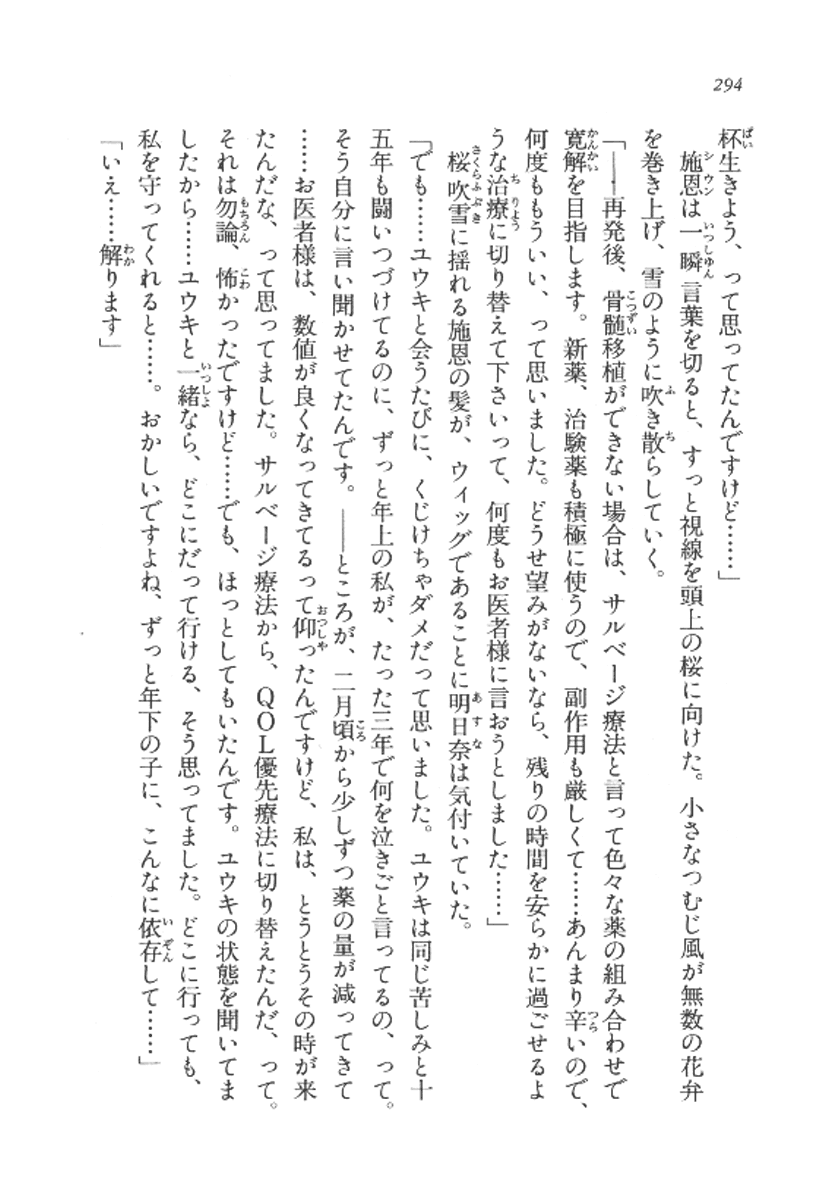 294
杯生きよう、って思ってたんですけど……」
　施恩は一瞬言葉を切ると、すっと視線を頭上の桜に向けた。小さなつむじ風が無数の花弁
を巻き上げ、雪のように吹き散らしていく。
「――再発後、骨髄移植ができない場合は、サルベージ療法と言って色々な薬の組み合わせで
寛解を目指します。新薬、治験薬も積極に使うので、副作用も厳しくて……あんまり辛いので、
何度ももういい、って思いました。どうせ望みがないなら、残りの時間を安らかに過ごせるよ
うな治療に切り替えて下さいって、何度もお医者様に言おうとしました……」
　桜吹雪に揺れる施恩の髪が、ウィッグであることに明日奈は気付いていた。
「でも……ユウキと会うたびに、くじけちゃダメだって思いました。ユウキは同じ苦しみと十
五年も闘いつづけてるのに、ずっと年上の私が、たった三年で何を泣きごと言ってるの、って。
そう自分に言い聞かせてたんです。――ところが、二月頃から少しずつ薬の量が減ってきて
……お医者様は、数値が良くなってきてるって仰ったんですけど、私は、とうとうその時が来
たんだな、って思ってました。サルベージ療法から、ＱＯＬ優先療法に切り替えたんだ、って。
それは勿論、怖かったですけど……でも、ほっとしてもいたんです。ユウキの状態を聞いてま
したから……ユウキと一緒なら、どこにだって行ける、そう思ってました。どこに行っても、
私を守ってくれると……。おかしいですよね、ずっと年下の子に、こんなに依存して……」
「いえ……解ります」